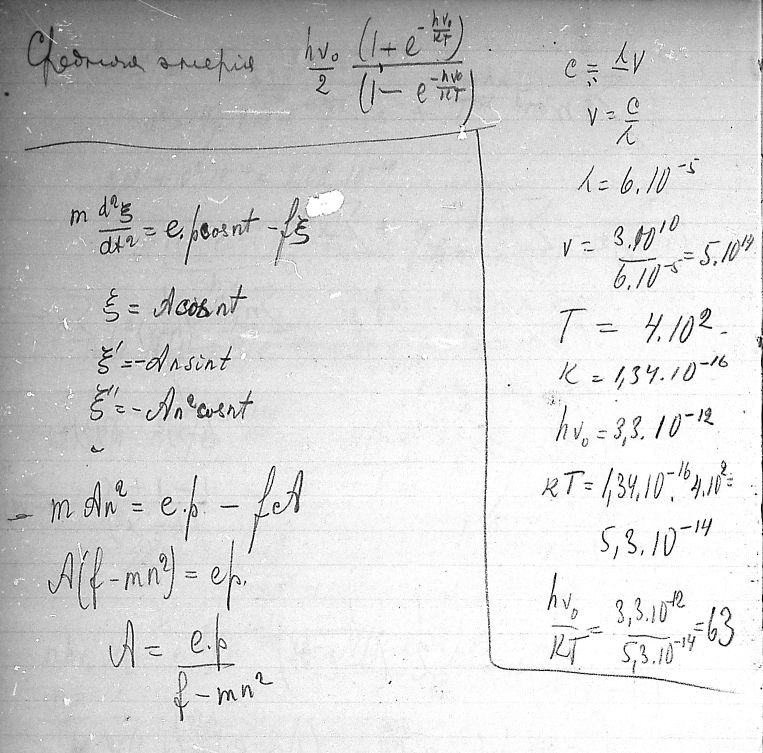 Средняя энергiя hν₀/2 (1+e^(-hν₀/KT))/(1-e^(-hν₀/KT))
m d²ξ/dt² = e.pcosnt - fξ
ξ = Acosnt
ξ' = -Ansint
ξ'' = -An²cosnt
- mAn² = e.p - fA
A(f-mn²) = ep.
A = e.p/(f-mn²)
c = λν
ν = c/λ
λ = 6.10⁻⁵
ν = 3.10¹⁰/6.10⁻⁵ = 5.10¹⁴
T = 4.10².
K = 1,34.10⁻¹⁶
hν₀ = 3,3.10⁻¹²
KT = 1,34.10⁻¹⁶.4.10² =
5,3.10⁻¹⁴
hν₀/KT = 3,3.10⁻¹²/5,3.10⁻¹⁴ = 63